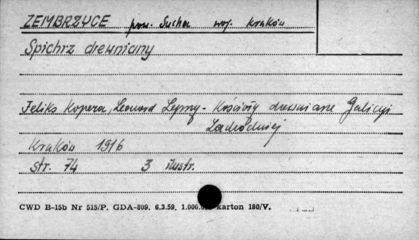 ZEMBRZYCE pow. Sucha woj. Kraków
Spichrz drewniany
Feliks Kopera, Leonard Lepszy - Kościoły drewniane Galicyi
Zachodniej
Kraków 1916
str. 74 3 ilustr.
CWD B-15b Nr 515/P. GDA-809. 6.3.59. 1.000.000 karton 180/V.